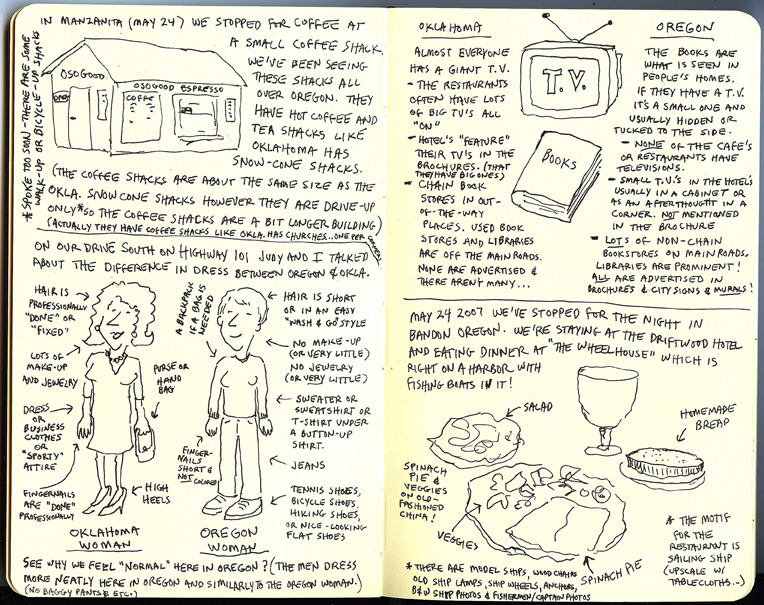 IN MANZANITA (MAY 24) WE STOPPED FOR COFFEE AT
A SMALL COFFEE SHACK.
WE'VE BEEN SEEING
THESE SHACKS ALL
OVER OREGON. THEY
HAVE HOT COFFEE AND
TEA SHACKS LIKE
OKLAHOMA HAS
SNOW-CONE SHACKS.
OSOGOOD
OPEN
OSOGOOD ESPRESSO
COFFEE
* SPOKE TOO SOON - THERE ARE SOME
WALK-UP OR BICYCLE-UP SHACKS
(THE COFFEE SHACKS ARE ABOUT THE SAME SIZE AS THE
OKLA. SNOW CONE SHACKS HOWEVER THEY ARE DRIVE-UP
ONLY* SO THE COFFEE SHACKS ARE A BIT LONGER BUILDING)
(ACTUALLY THEY HAVE COFFEE SHACKS LIKE OKLA. HAS CHURCHES...ONE PER CORNER)
ON OUR DRIVE SOUTH ON HIGHWAY 101 JUDY AND I TALKED
ABOUT THE DIFFERENCE IN DRESS BETWEEN OREGON & OKLA.
HAIR IS
PROFESSIONALLY
"DONE" OR
"FIXED"
LOTS OF
MAKE-UP
AND JEWELRY
DRESS
OR
BUSINESS
CLOTHES
OR
"SPORTY"
ATTIRE
FINGERNAILS
ARE "DONE"
PROFESSIONALLY
PURSE OR
HAND
BAG
HIGH
HEELS
OKLAHOMA
WOMAN
A BACKPACK
IF A BAG IS
NEEDED
FINGER-
NAILS
SHORT &
NOT COLORED
HAIR IS SHORT
OR IN AN EASY
"WASH & GO" STYLE
NO MAKE-UP
(OR VERY LITTLE)
NO JEWELRY
(OR VERY LITTLE)
SWEATER OR
SWEATSHIRT OR
T-SHIRT UNDER
A BUTTON-UP
SHIRT.
JEANS
TENNIS SHOES,
BICYCLE SHOES,
HIKING SHOES,
OR NICE-LOOKING
FLAT SHOES
OREGON
WOMAN
SEE WHY WE FEEL "NORMAL" HERE IN OREGON? (THE MEN DRESS
MORE NEATLY HERE IN OREGON AND SIMILARLY TO THE OREGON WOMAN.)
(NO BAGGY PANTS & ETC.)
OKLAHOMA
ALMOST EVERYONE
HAS A GIANT T.V.
- THE RESTAURANTS
OFTEN HAVE LOTS
OF BIG TV'S ALL
"ON"
- HOTEL'S "FEATURE"
THEIR TV'S IN THE
BROCHURES. (THAT
THEY HAVE BIG ONES)
- CHAIN BOOK
STORES IN OUT-
OF-THE-WAY
PLACES. USED BOOK
STORES AND LIBRARIES
ARE OFF THE MAIN ROADS.
NONE ARE ADVERTISED &
THERE AREN'T MANY...
T.V.
BOOKS
OREGON
THE BOOKS ARE
WHAT IS SEEN IN
PEOPLE'S HOMES.
IF THEY HAVE A T.V.
IT'S A SMALL ONE AND
USUALLY HIDDEN OR
TUCKED TO THE SIDE.
- NONE OF THE CAFE'S
OR RESTAURANTS HAVE
TELEVISIONS.
- SMALL T.V.'S IN THE HOTEL'S
USUALLY IN A CABINET OR
AS AN AFTERTHOUGHT IN A
CORNER. NOT MENTIONED
IN THE BROCHURE
- LOTS OF NON-CHAIN
BOOKSTORES ON MAIN ROADS.
LIBRARIES ARE PROMINENT!
ALL ARE ADVERTISED IN
BROCHURES & CITY SIGNS & MURALS!
MAY 24 2007 WE'VE STOPPED FOR THE NIGHT IN
BANDON OREGON. WE'RE STAYING AT THE DRIFTWOOD HOTEL
AND EATING DINNER AT "THE WHEELHOUSE" WHICH IS
RIGHT ON A HARBOR WITH
FISHING BOATS IN IT!
SALAD
HOMEMADE
BREAD
SPINACH
PIE &
VEGGIES
ON OLD-
FASHIONED
CHINA!
VEGGIES
SPINACH PIE
* THE MOTIF
FOR THE
RESTAURANT IS
SAILING SHIP
(UPSCALE W/
TABLECLOTHS...)
* THERE ARE MODEL SHIPS, WOOD CHAIRS
OLD SHIP LAMPS, SHIP WHEELS, ANCHORS,
B & W SHIP PHOTOS & FISHERMEN/CAPTAIN PHOTOS